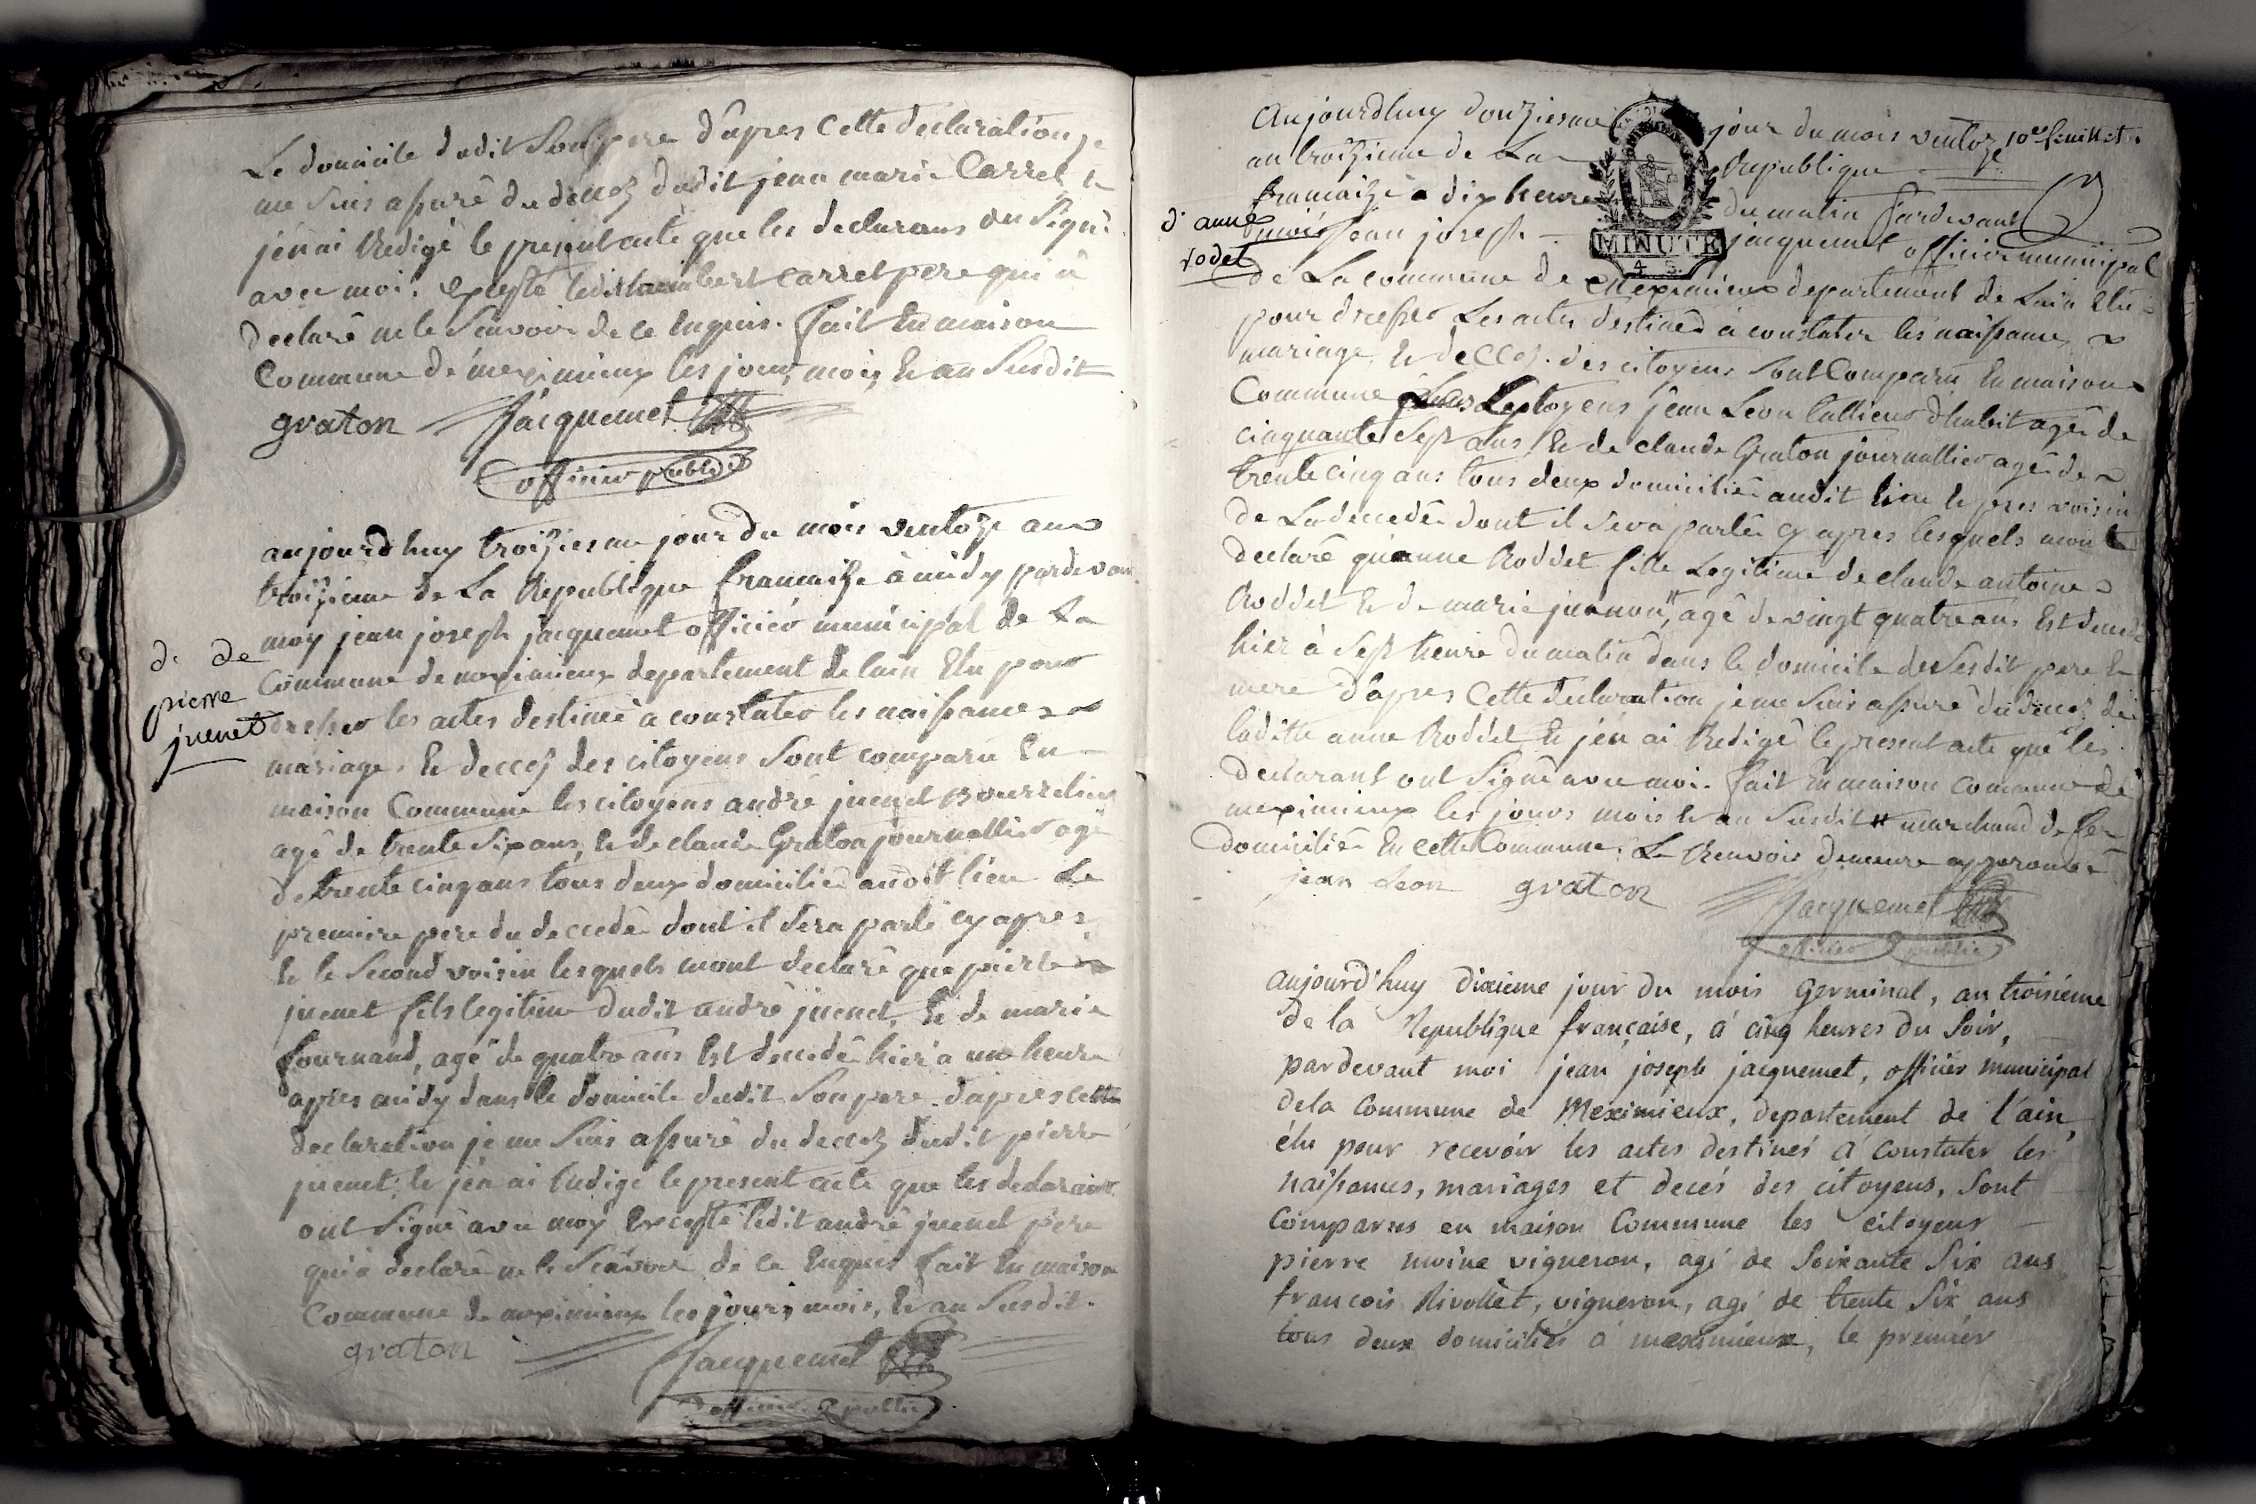 Le domicile dudit Son pere d'apres Cette declaration je
me Suis assuré du decez dudit jean marie Carret, et
j'en ai Redigé le present acte que les declarans ont Signé
avec moi. Excepté ledit lambert carret pere qui a
declaré ne le Scavoir de ce Enquis. fait En maison
Commune de meximieux les jour, mois, Et an Susdit
graton Jacquemet
officier public
aujourdhuy troiziesme jour du mois ventoze an
troizieme de La Republique francaize à midy pardevant
moy jean joseph jacquemet officier municipal de La
Commune de meximieux departement de lain Elu pour
dresser les actes destiné a constater les naissances
mariage, Et deccez des citoyens Sont comparu En
maison Commune les citoyens andré juenet Bourrelier
agé de trente Six ans, Et de claude Graton journallier agé
de trente cinq ans tous deux domicilié audit lieu Le
premiere pere du deccedé dont il Sera parlé cy apres,
Et le Second voisin lesquels mont declaré que pierre
juenet fils legitime dudit andré juenet, Et de marie
fournand, agé de quatre ans Est decedé hier a une heure
apres midy dans le domicile dudit Son pere. d'apres cette
declaration je me Suis assuré du deccez dudit pierre
juenet, Et j'en ai Redigé le present acte que les declarant
ont Signé avec moy Excepté ledit andré juenet pere
qui a declaré ne le Scavoir de ce Enquis fait En maison
Commune de meximieux les jours, mois, Et an Susdit.
graton Jacquemet
officier public
d. de
pierre
juenet
Aujourdhuy douziesme jour du mois ventoze 10e feuillet.
an troizieme de La Republique
francaize a dix heure du matin pardevant
moi Jean joseph jacquemet officier municipal
MINUTE
4 S.
de La commune de Meximieux departement de Lain Elu
pour dresser Les actes destiné à constater les naissances
mariage, Et deccez. des citoyens Sont Comparu En maison
Commune Les Citoyens jean Leon tallieur dhabit agé de
cinquante Sept ans, Et de claude Graton journallier agé de
trente cinq ans tous deux domicilié audit lieu Et pres voisin
de La deccedé dont il Sera parlé cy apres lesquels mont
declaré qu'anne Roddet fille Legitime de claude antoine
Roddet Et de marie juenon, agé de vingt quatre ans Est decedé
hier à Sept heure du matin dans le domicile de Sesdit pere Et
mere d'apres Cette declaration je me Suis assuré du decez de
ladite anne Roddet Et j'en ai Redigé le present acte que les
declarant ont Signé avec moi. fait En maison commune de
meximieux les jours mois Et an Susdit # marchand de fer
domicilié En cette Commune. Le Renvoir demeure approuvé
jean Leon graton
Jacquemet
officier public
d. anne
rodet
aujourd'huy dixieme jour du mois Germinal, an troisiéme
de la Republique française, à cinq heures du Soir,
pardevant moi jean joseph jacquemet, officier municipal
de la Commune de Meximieux, departement de l'ain,
élu pour recevoir les actes destinés à Constater les
naissances, mariages et decés des citoyens, Sont
Comparus en maison Commune les citoyens
pierre moine vigneron, agé de Soixante Six ans
francois Rivollet, vigneron, agé de trente Six ans
tous deux domiciliés à meximieux, le premier